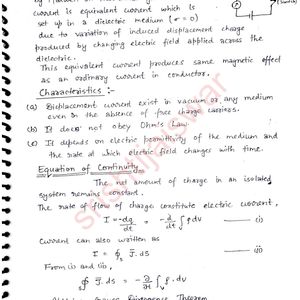 current is equivalent current which is
set up in a dielectric medium (σ = 0)
due to variation of induced displacement charge
produced by changing electric field applied across the
dielectric.
This equivalent current produces same magnetic effect
as an ordinary current in conductor.
Characteristics :-
(a) Displacement current exist in vacuum or any medium
even in the absence of free charge carriers.
(b) It does not obey Ohm's
(c) It depends on electric permittivity of the medium and
the rate at which electric field changes with time.
Equation of Continuity
The net amount of charge in an isolated
system remains constant.
The rate of flow of charge constitute electric current,
I = -dq/dt = -d/dt ∫ρ dv — (i)
Current can also written as
I = ∮s J̄. ds — (ii)
From (i) and (ii),
∮s J̄. ds = -∂/∂t ∫v ρ. dv
Divergence Theorem